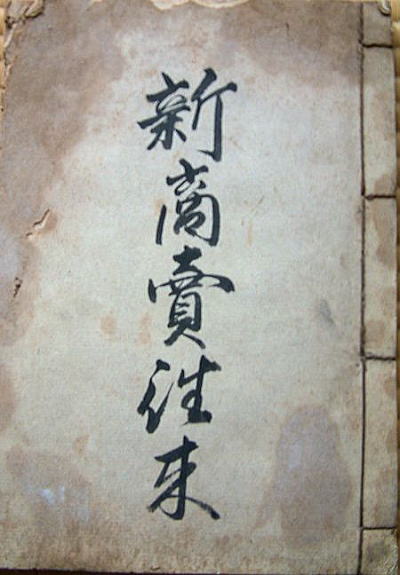 新商賣往来